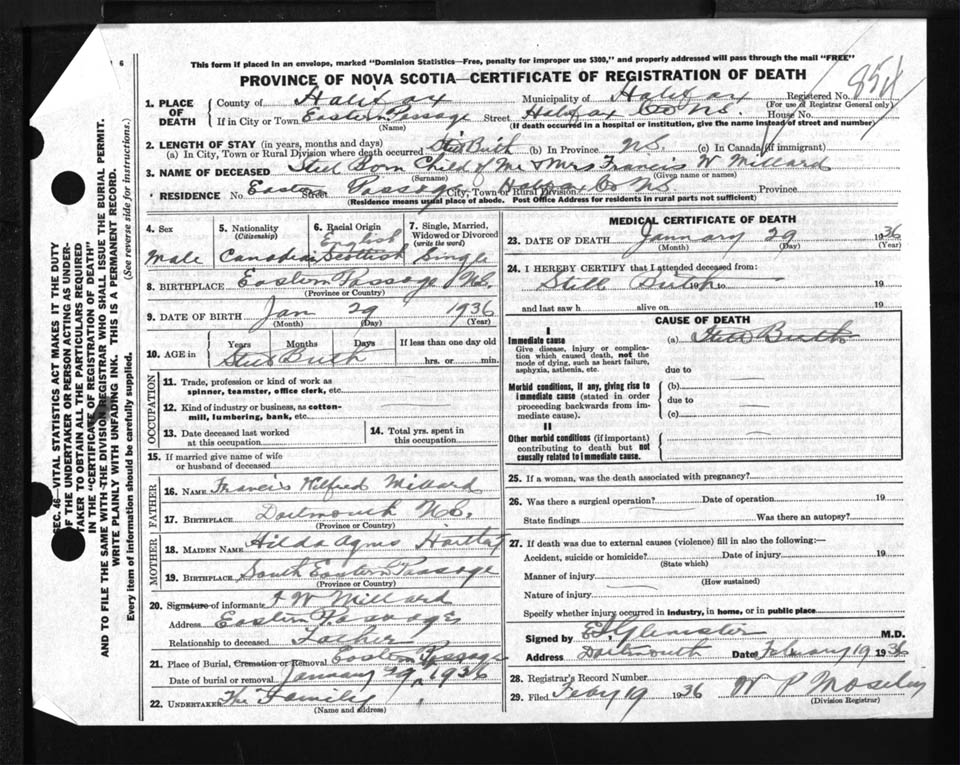 6
This form if placed in an envelope, marked "Dominion Statistics—Free, penalty for improper use $300," and properly addressed will pass through the mail "FREE"
PROVINCE OF NOVA SCOTIA—CERTIFICATE OF REGISTRATION OF DEATH
1. PLACE OF DEATH
County of Halifax Municipality of Halifax Registered No.
(For use of Registrar General only)
If in City or Town Eastern Passage Street Halifax Co N.S. House No.
(Name) (If death occurred in a hospital or institution, give the name instead of street and number)
2. LENGTH OF STAY (in years, months and days)
(a) In City, Town or Rural Division where death occurred Still Birth (b) In Province N.S. (c) In Canada (if immigrant)
3. NAME OF DECEASED Still Born Child of Mr & Mrs Francis W Millard
(Surname) (Given name or names)
RESIDENCE No. Eastern Street Passage City, Town or Rural Division Halifax Co N.S. Province
(Residence means usual place of abode. Post Office Address for residents in rural parts not sufficient)
4. Sex
Male
5. Nationality
(Citizenship)
Canadian
6. Racial Origin
English
Scottish
7. Single, Married, Widowed or Divorced
(write the word)
Single
8. BIRTHPLACE Eastern Passage N.S.
(Province or Country)
9. DATE OF BIRTH Jan 29 1936
(Month) (Day) (Year)
10. AGE in Years Months Days If less than one day old
Still Birth hrs. or min.
OCCUPATION
11. Trade, profession or kind of work as spinner, teamster, office clerk, etc.
12. Kind of industry or business, as cotton-mill, lumbering, bank, etc.
13. Date deceased last worked at this occupation
14. Total yrs. spent in this occupation
15. If married give name of wife or husband of deceased
FATHER
16. NAME Francis Wilfred Millard
17. BIRTHPLACE Dartmouth N.S.
(Province or Country)
MOTHER
18. MAIDEN NAME Hilda Agnes
19. BIRTHPLACE South Eastern Passage
(Province or Country)
20. Signature of informant F W Millard
Address Eastern Passage
Relationship to deceased Father
21. Place of Burial, Cremation or Removal Eastern Passage
Date of burial or removal January 29, 1936
22. UNDERTAKER The Family
(Name and address)
MEDICAL CERTIFICATE OF DEATH
23. DATE OF DEATH January 29 1936
(Month) (Day) (Year)
24. I HEREBY CERTIFY that I attended deceased from:
Still Birth 19 to 19
and last saw h alive on 19
CAUSE OF DEATH
I
Immediate cause (a) Still Birth
Give disease, injury or complication which caused death, not the mode of dying, such as heart failure, asphyxia, asthenia, etc.
due to
Morbid conditions, if any, giving rise to immediate cause (stated in order proceeding backwards from immediate cause).
(b)
due to
(c)
II
Other morbid conditions (if important) contributing to death but not causally related to immediate cause.
25. If a woman, was the death associated with pregnancy?
26. Was there a surgical operation? Date of operation 19
State findings Was there an autopsy?
27. If death was due to external causes (violence) fill in also the following:—
Accident, suicide or homicide? Date of injury 19
(State which)
Manner of injury
(How sustained)
Nature of injury
Specify whether injury occurred in industry, in home, or in public place
Signed by M.D.
Address Dartmouth Date February 19 1936
28. Registrar's Record Number
29. Filed Feby 19 1936 W P Moseley
(Division Registrar)
SEC. 46—VITAL STATISTICS ACT MAKES IT THE DUTY
OF THE UNDERTAKER OR PERSON ACTING AS UNDER-
TAKER TO OBTAIN ALL THE PARTICULARS REQUIRED
IN THE "CERTIFICATE OF REGISTRATION OF DEATH"
AND TO FILE THE SAME WITH THE DIVISION REGISTRAR WHO SHALL ISSUE THE BURIAL PERMIT.
WRITE PLAINLY WITH UNFADING INK. THIS IS A PERMANENT RECORD.
Every item of information should be carefully supplied. (See reverse side for instructions.)